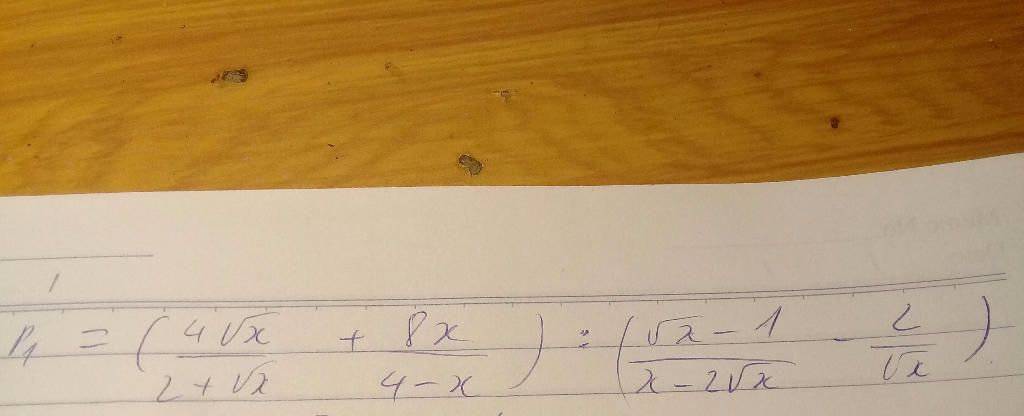 P₁ = ( \frac{4\sqrt{x}}{2+\sqrt{x}} + \frac{8x}{4-x} ) : ( \frac{\sqrt{x}-1}{x-2\sqrt{x}} - \frac{2}{\sqrt{x}} )